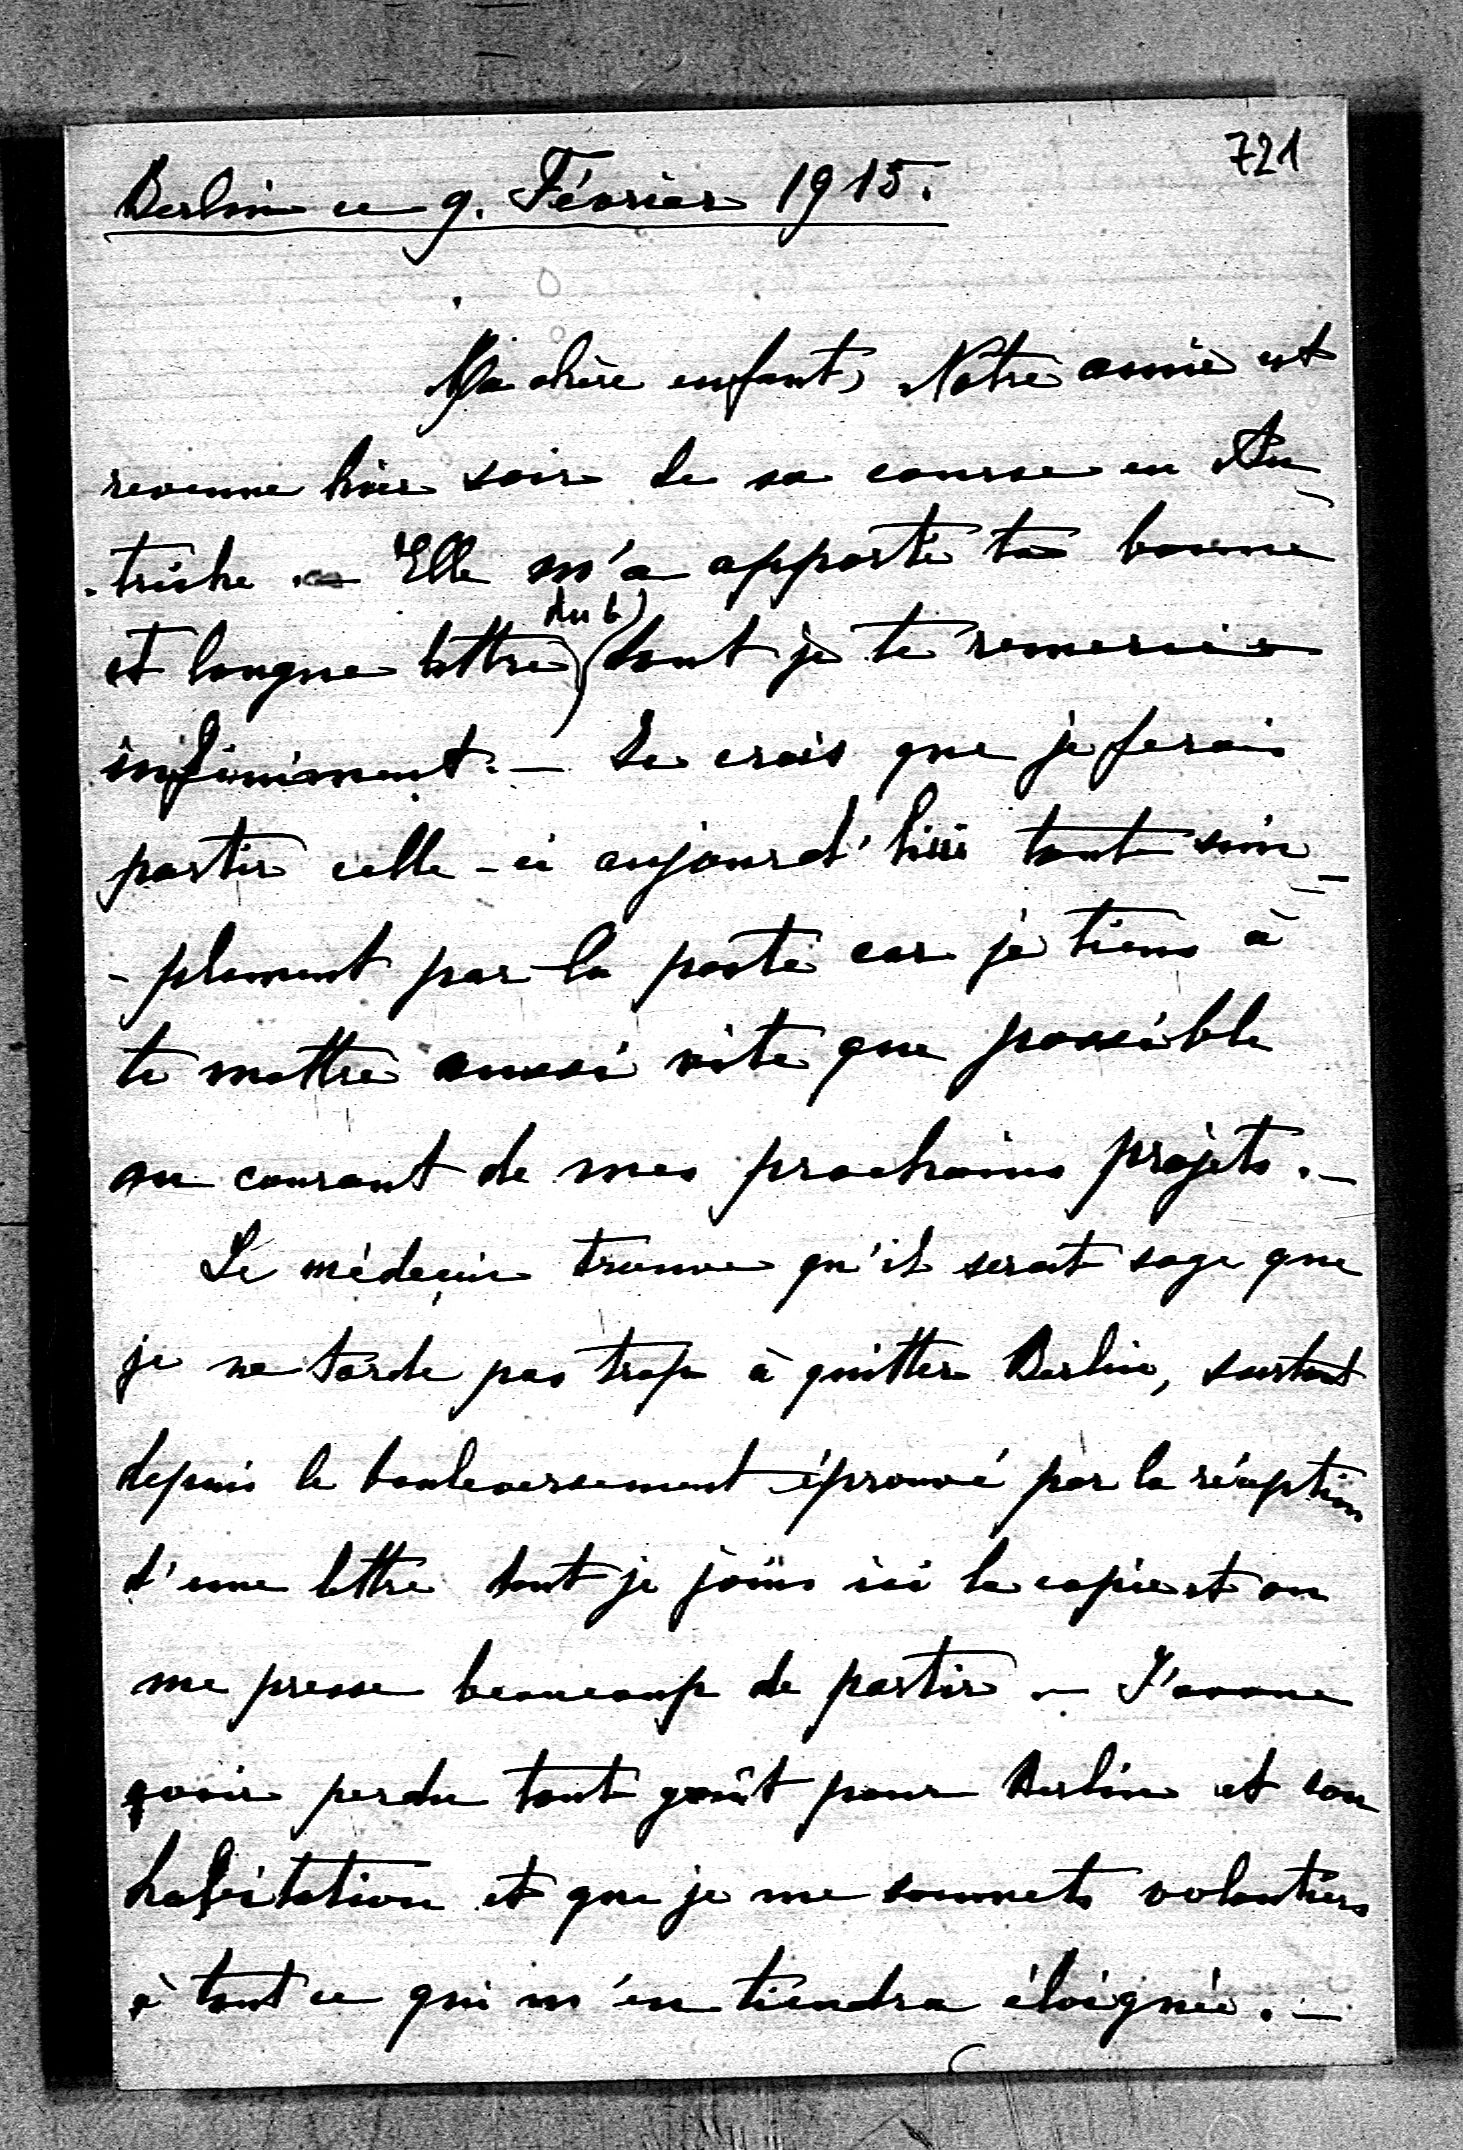 721
Berlin ce 9. Février 1915.
Ma chère enfant, Notre amie est
revenue hier soir de sa course en Au
-triche. — Elle m'a apporté ta bonne
et longue lettre (du 6) dont je te remercie
infiniment. — Je crois que je ferais
partir celle-ci aujourd'hui tout sim-
-plement par la poste car je tiens à
te mettre aussi vite que possible
au courant de mes prochains projets. —
Le médecin trouve qu'il serait sage que
je ne tarde pas trop à quitter Berlin, surtout
depuis le bouleversement éprouvé par la réception
d'une lettre dont je joins ici la copie et on
me presse beaucoup de partir. — J'avoue
avoir perdu tout goût pour Berlin et son
habitation et que je me soumets volontiers
à tout ce qui m'en tiendra éloignée. —